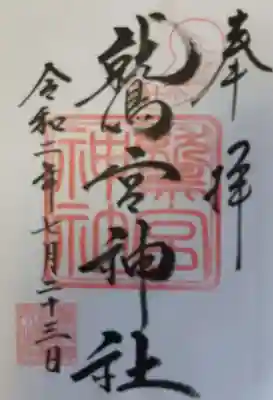 奉拝
鷲宮神社
令和二年七月二十三日
鷲宮
神社